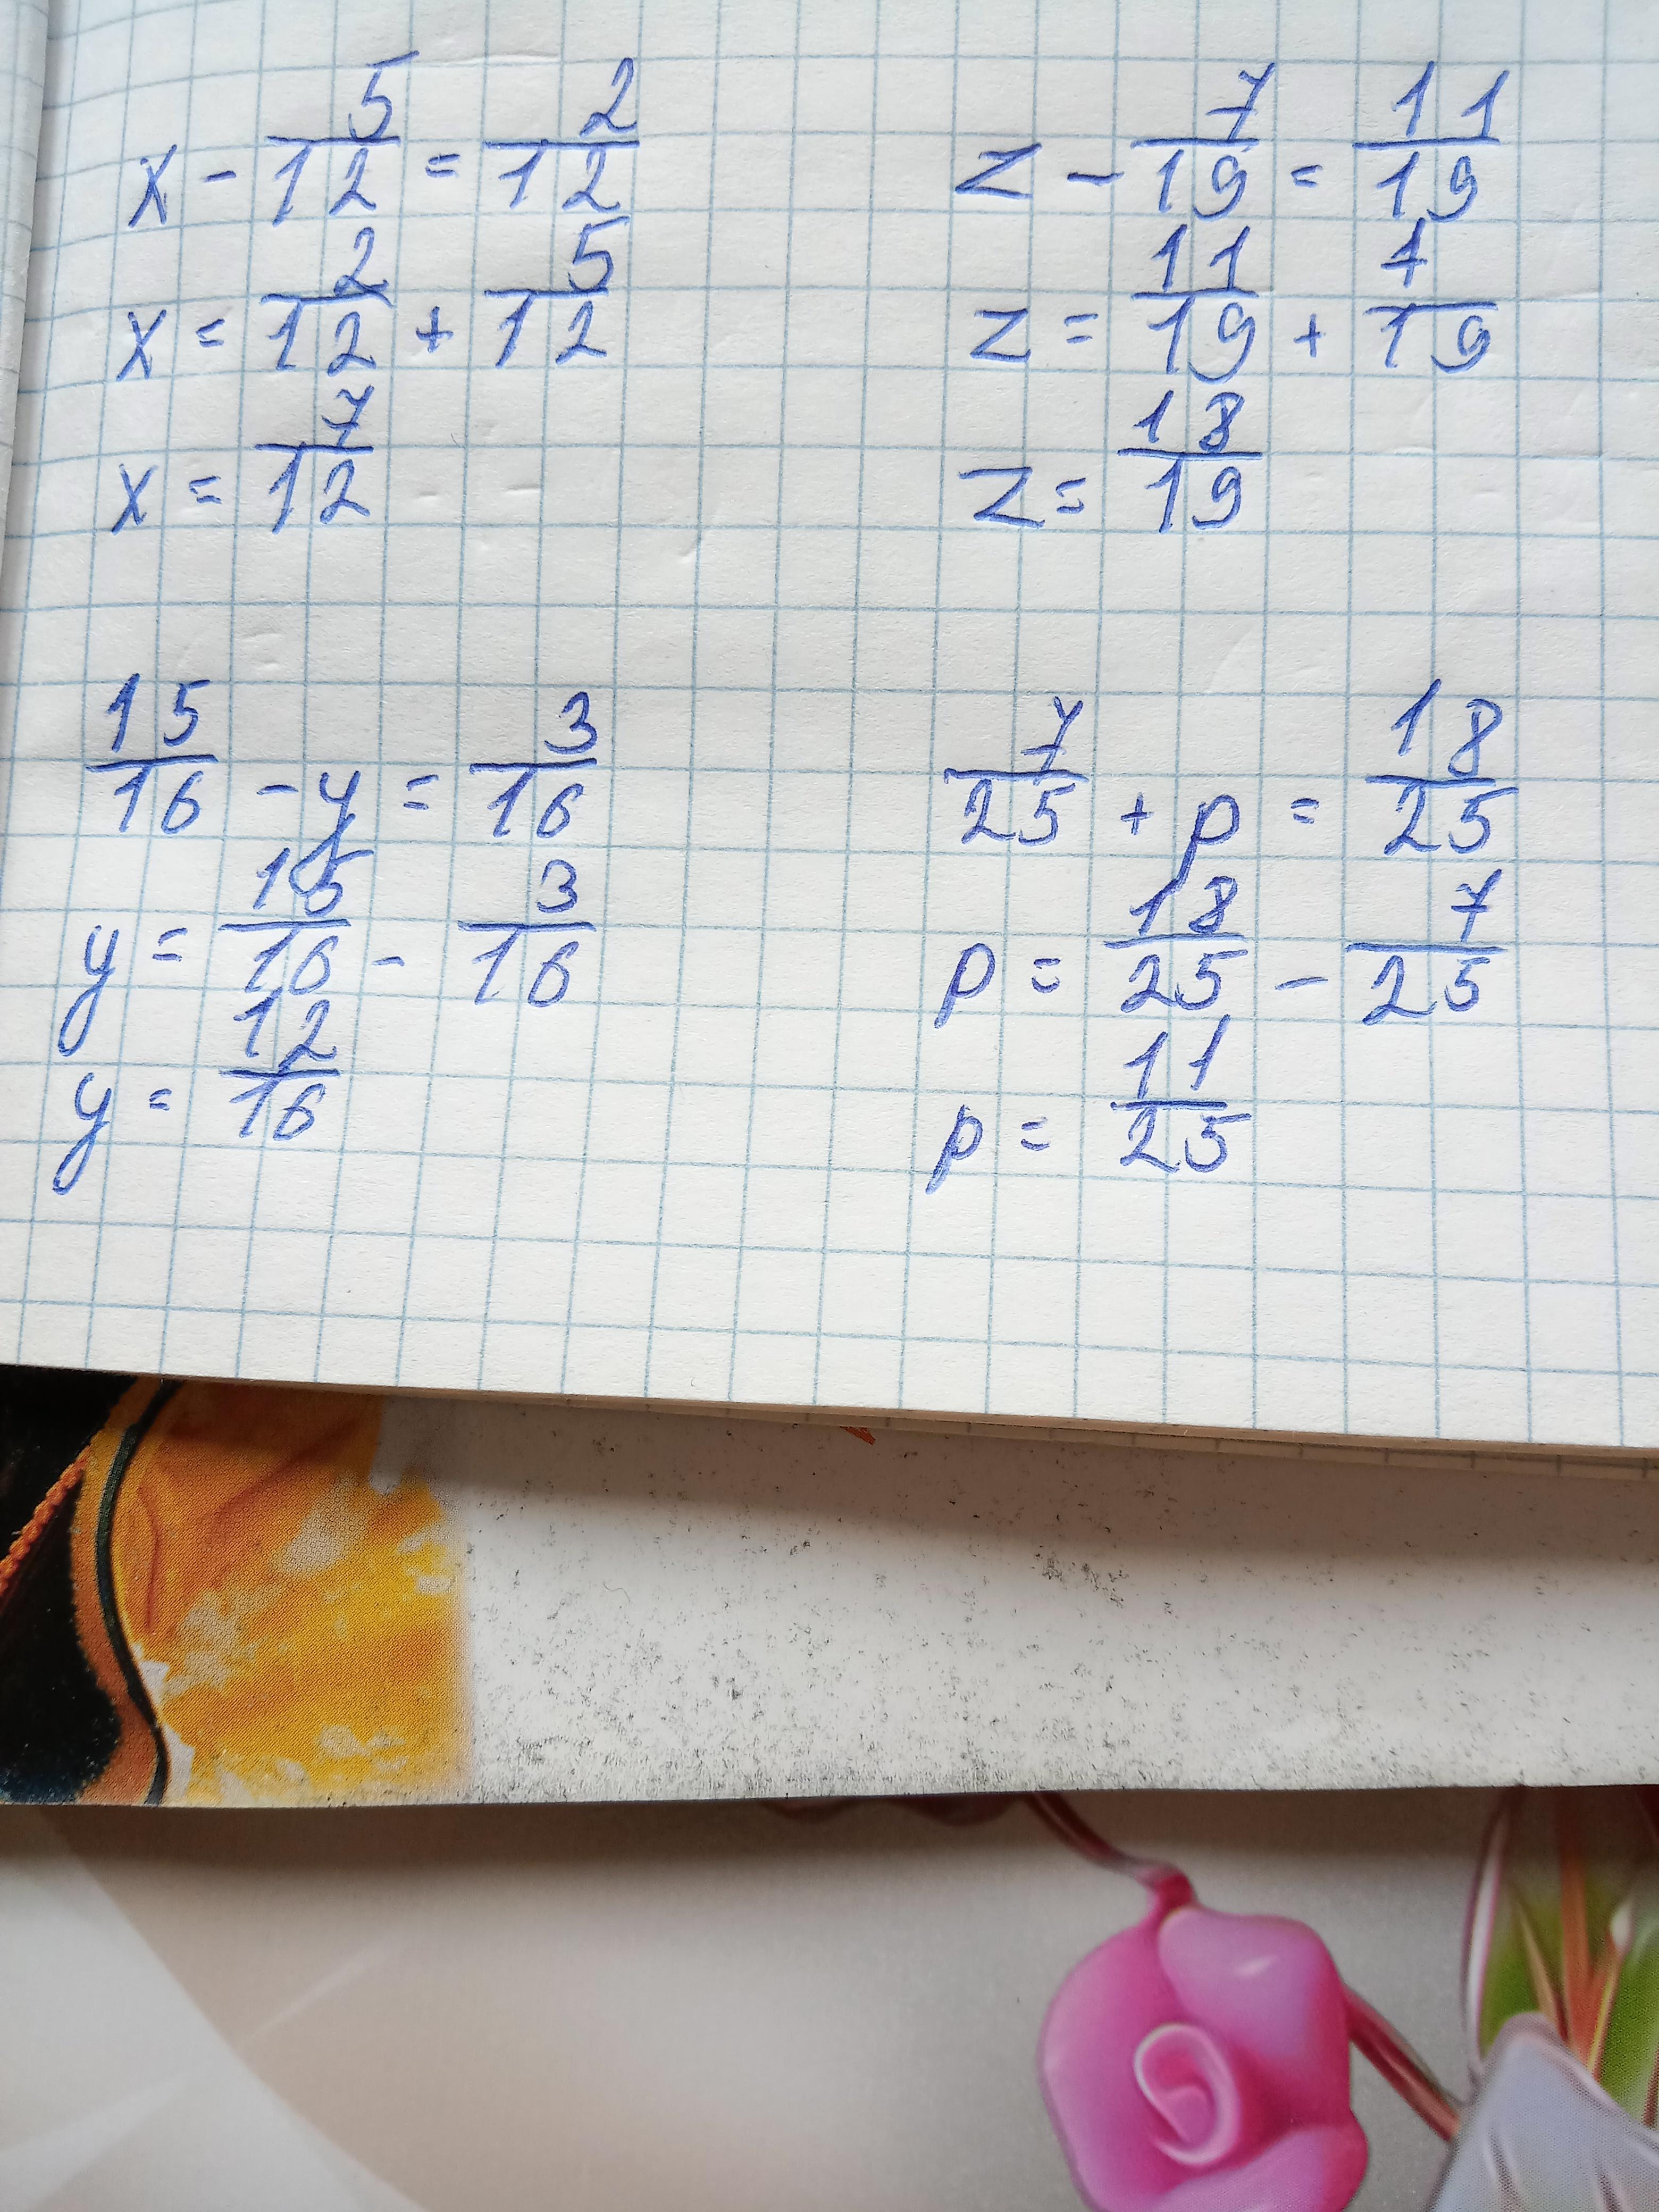 x - 5/12 = 2/12
x = 2/12 + 5/12
x = 7/12
z - 7/19 = 11/19
z = 11/19 + 7/19
z = 18/19
15/16 - y = 3/16
y = 15/16 - 3/16
y = 12/16
7/25 + p = 18/25
p = 18/25 - 7/25
p = 11/25